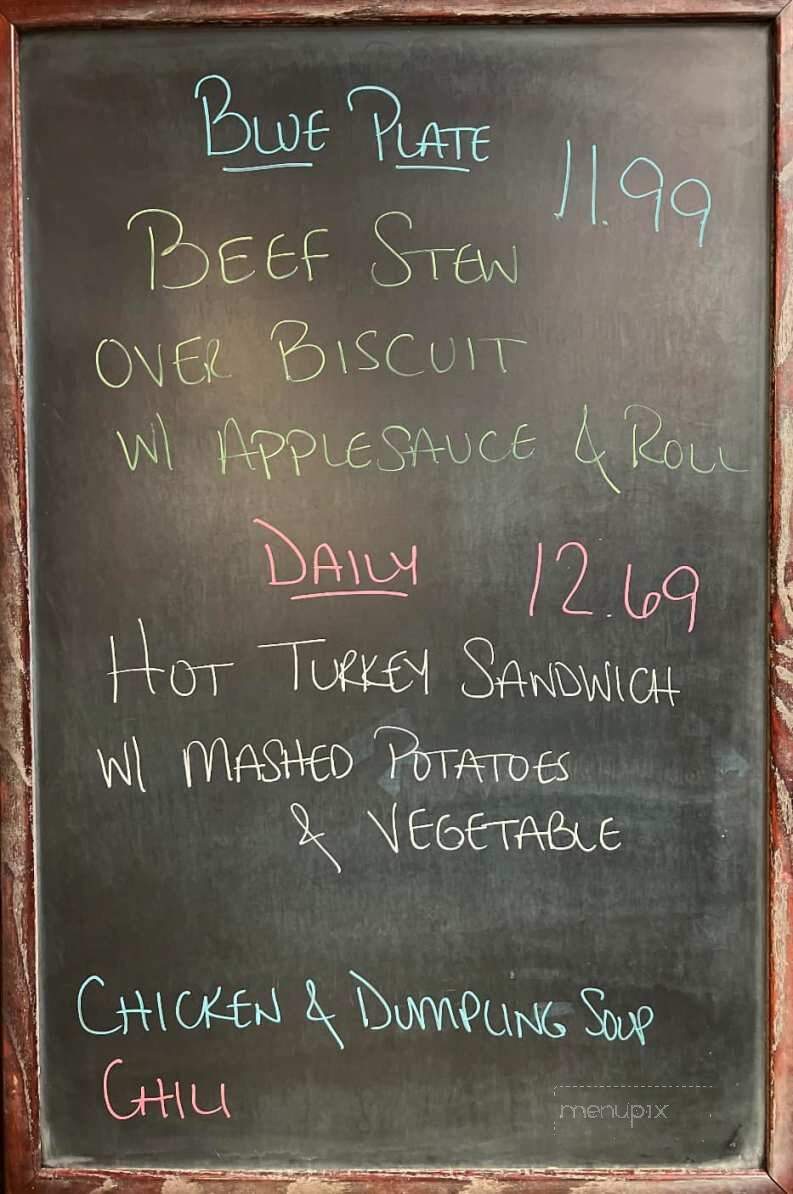 BLUE PLATE 11.99
BEEF STEW
OVER BISCUIT
W/ APPLESAUCE & ROLL
DAILY 12.69
HOT TURKEY SANDWICH
W/ MASHED POTATOES
& VEGETABLE
CHICKEN & DUMPLING SOUP
CHILI
menupix